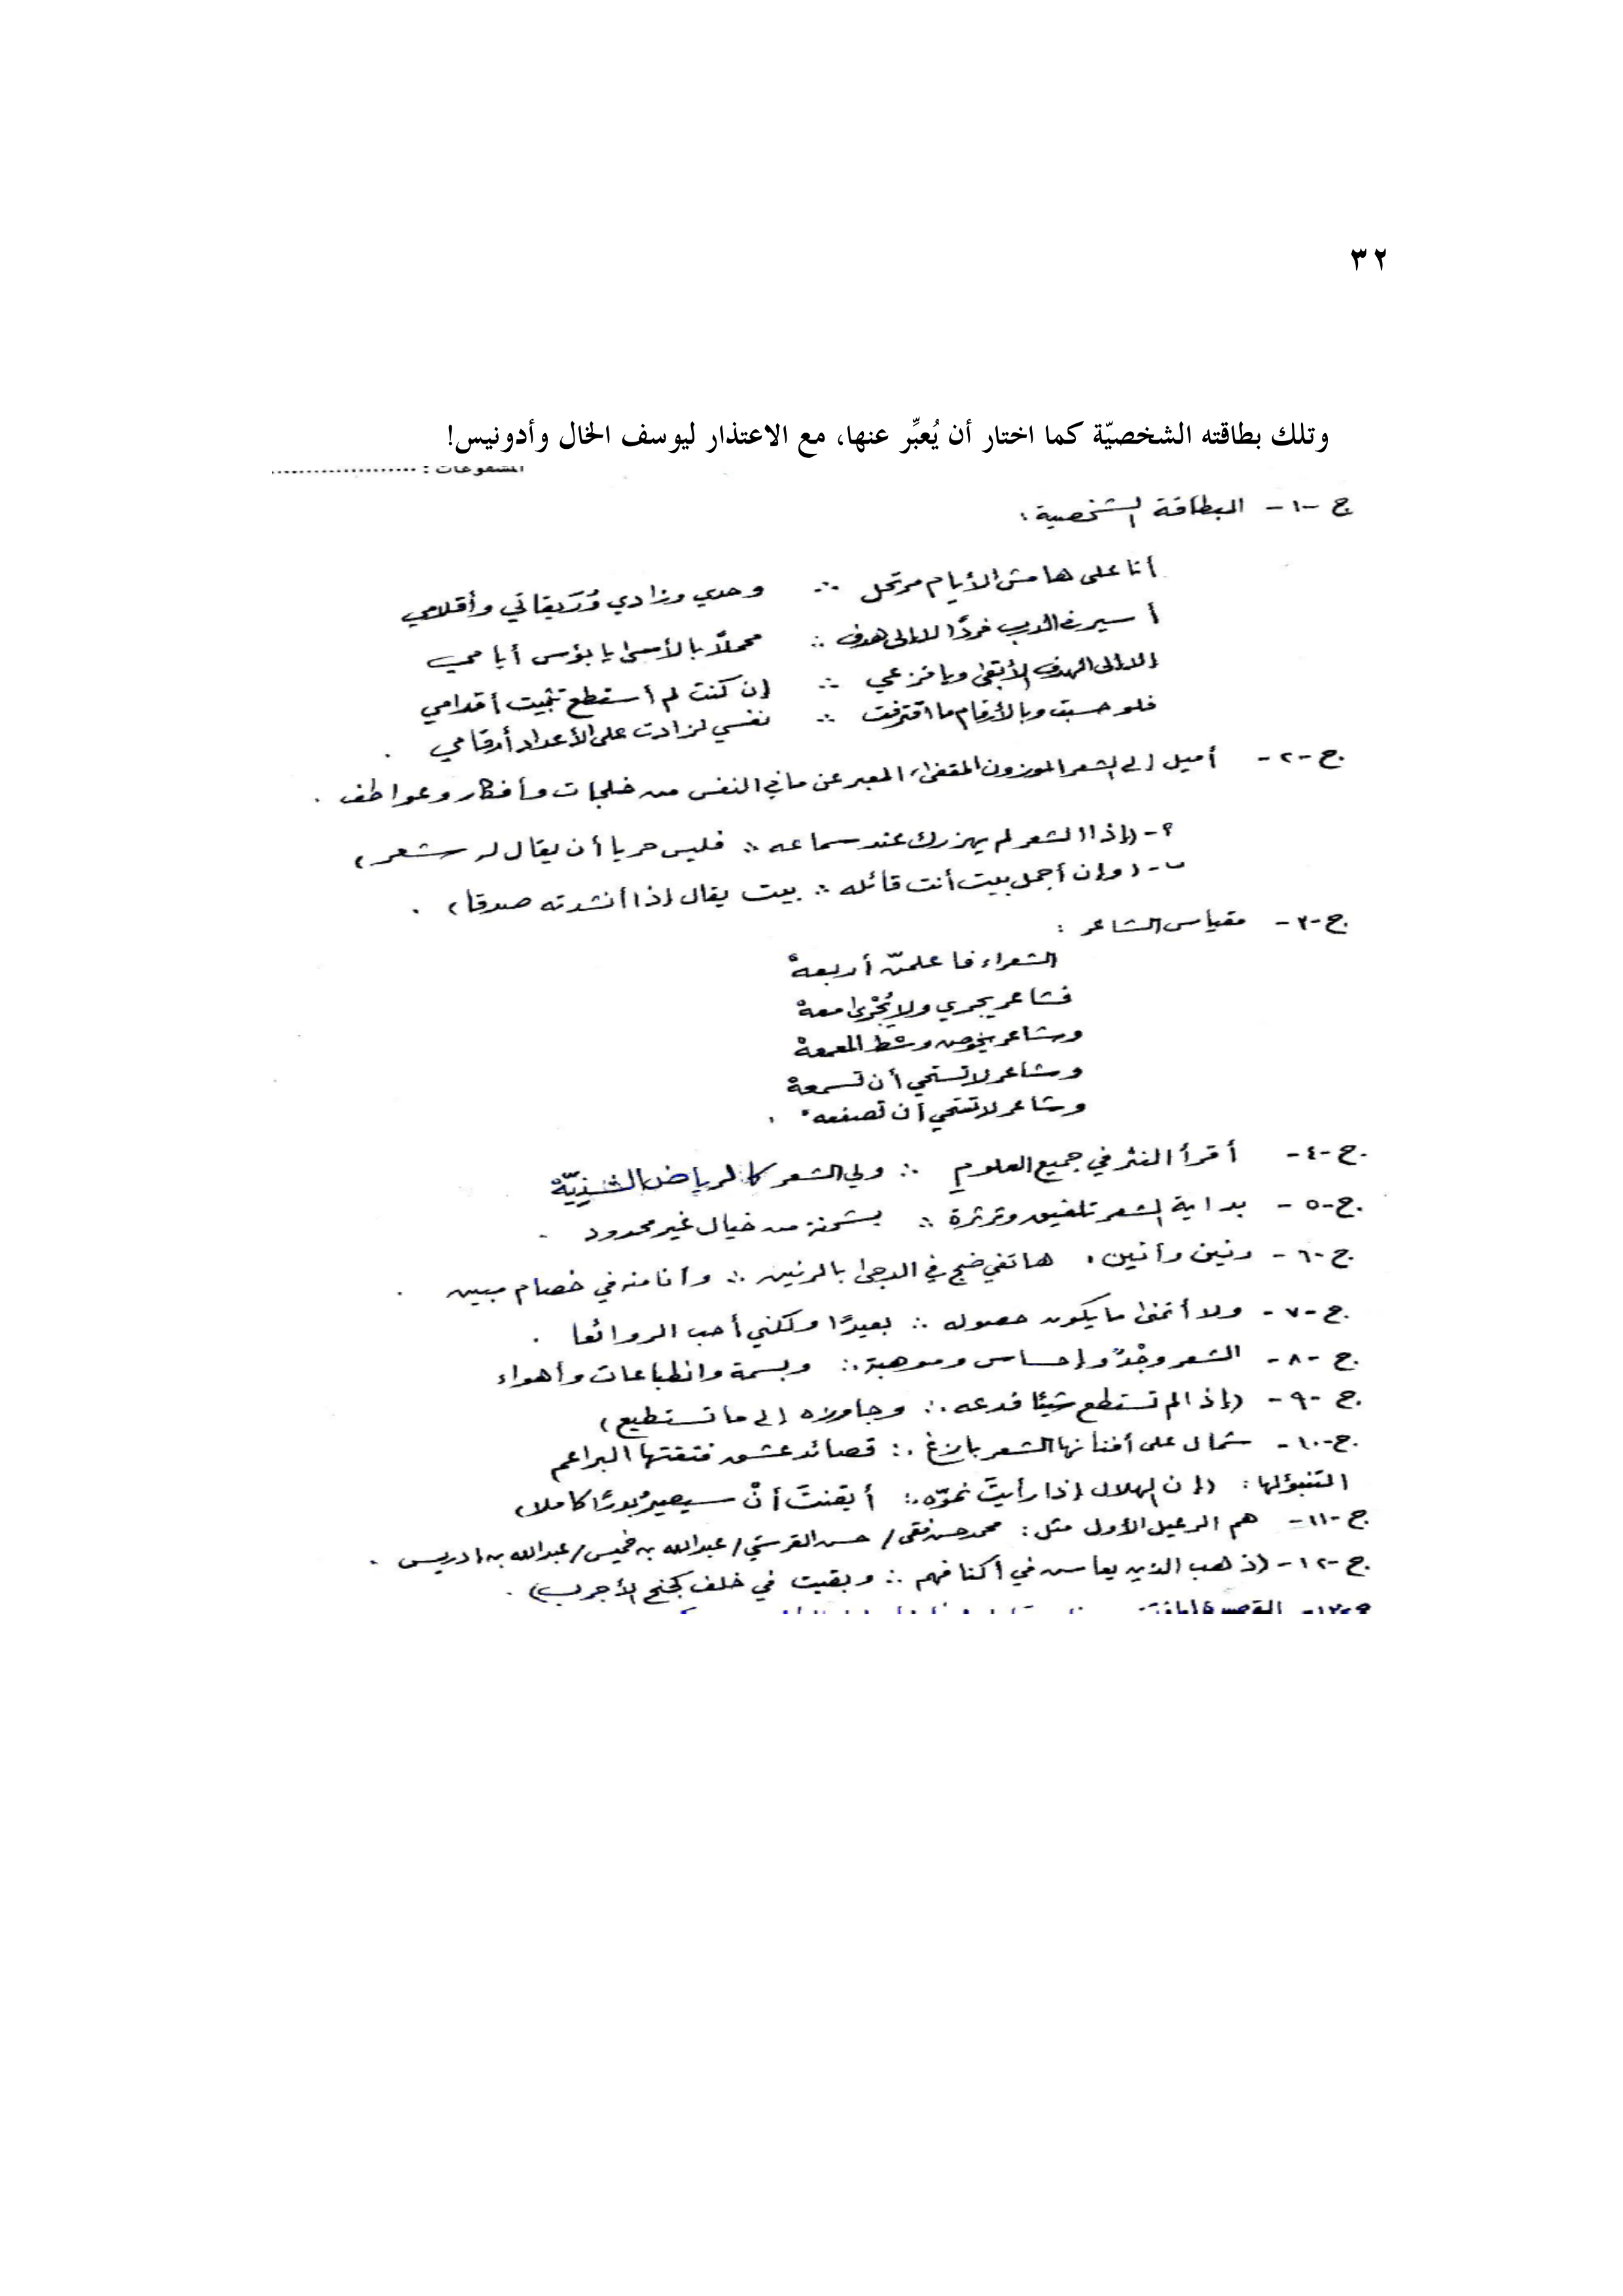 ٣٢
وتلك بطاقته الشخصيّة كما اختار أن يُعبِّر عنها، مع الاعتذار ليوسف الخال وأدونيس!
المشفوعات : ....................
ج -١- البطاقة الشخصية :
أنا على هامش الأيام مرتحل ∴ وحدي وزادي وُرَيقاتي وأقلامي
أسير في الدرب فردًا لا إلى هدف ∴ محملًا بالأسى يا بؤس أيامي
إلا إلى الهدف الأبقى ويا فزعي ∴ إن كنت لم أستطع تثبيت أقدامي
فلو حسبت وبالأرقام ما اقترفت ∴ نفسي لزادت على الأعداد أرقامي .
ج -٢- أميل إلى الشعر الموزون المقفى، المعبر عن ما في النفس من خلجات وأفكار وعواطف .
٢- (إذا الشعر لم يهززك عند سماعه ∴ فليس حريا أن يقال له شعر)
ب- (وإن أجمل بيت أنت قائله ∴ بيت يقال إذا أنشدته صدقا) .
ج -٣- مقياس الشاعر :
الشعراء فاعلمنّ أربعهْ
فشاعر يجري ولا يُجْرى معهْ
وشاعر يخوض وسْط المعمعهْ
وشاعر لا تستحي أن تسمعهْ
وشاعر لا تستحي أن تصفعهْ .
ج -٤- أقرأ النثر في جميع العلومِ ∴ ولي الشعر كالرياض الشذِيّهْ
ج -٥- بداية الشعر تلفيق وثرثرة ∴ بشحنة من خيال غير محدود .
ج -٦- رنين وأنين . هاتفي ضج في الدجى بالرنين ∴ وأنا منه في خصام مبين .
ج -٧- ولا أتمنى ما يكون حصوله ∴ بعيدًا ولكني أحب الروائعا .
ج -٨- الشعر وجْدٌ وإحساس وموهبة ∴ وبسمة وانطباعات وأهواء
ج -٩- (إذا لم تستطع شيئا فدعه ∴ وجاوزه إلى ما تستطيع)
ج -١٠- شمال على أفنانها الشعر بازغ ∴ قصائد عشق فتقتها البراعم
التنبؤ لها : (إن الهلال إذا رأيتَ نموّه ∴ أيقنتَ أنْ سيصيرُ بدرًا كاملا)
ج -١١- هم الرعيل الأول مثل : محمد حسن فقي / حسن القرشي / عبدالله بن خميس / عبدالله بن ادريس .
ج -١٢- (ذهب الذين يعاش في أكنافهم ∴ وبقيت في خلف كجلد الأجرب) .